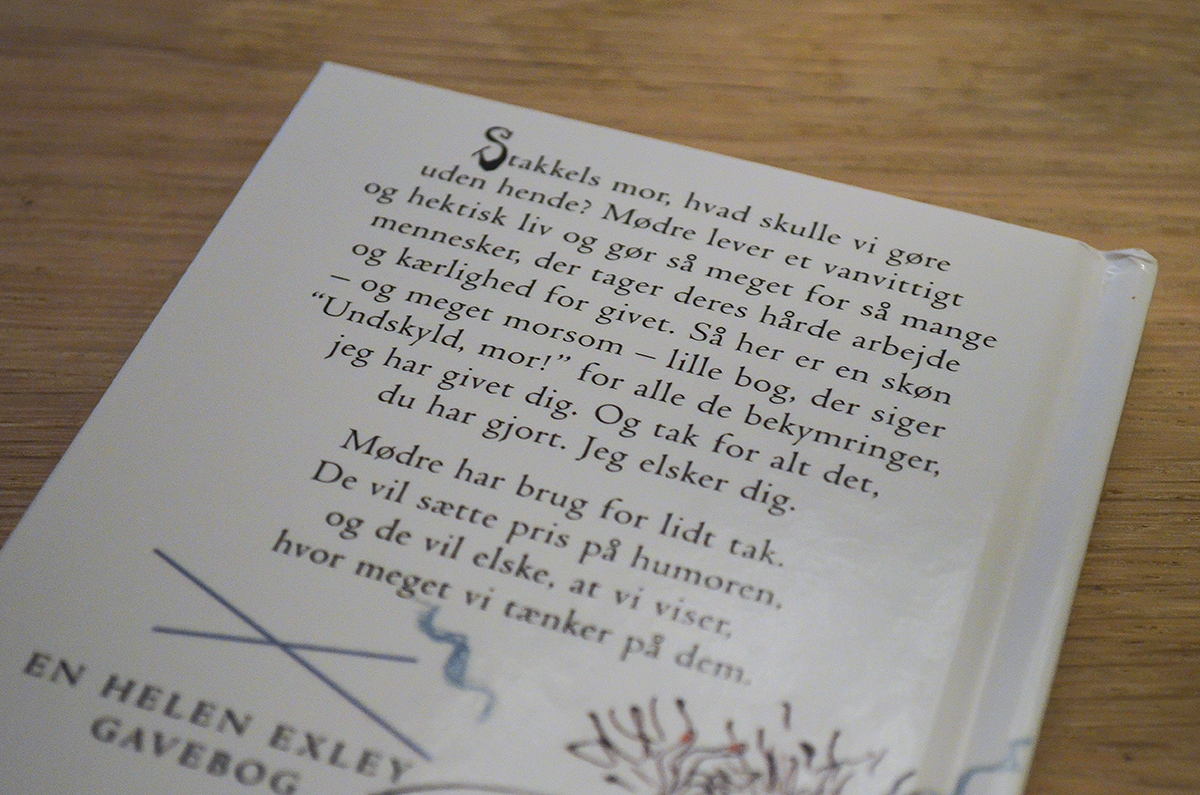 Stakkels mor, hvad skulle vi gøre
uden hende? Mødre lever et vanvittigt
og hektisk liv og gør så meget for så mange
mennesker, der tager deres hårde arbejde
og kærlighed for givet. Så her er en skøn
– og meget morsom – lille bog, der siger
“Undskyld, mor!” for alle de bekymringer,
jeg har givet dig. Og tak for alt det,
du har gjort. Jeg elsker dig.
Mødre har brug for lidt tak.
De vil sætte pris på humoren,
og de vil elske, at vi viser,
hvor meget vi tænker på dem.
EN HELEN EXLEY
GAVEBOG